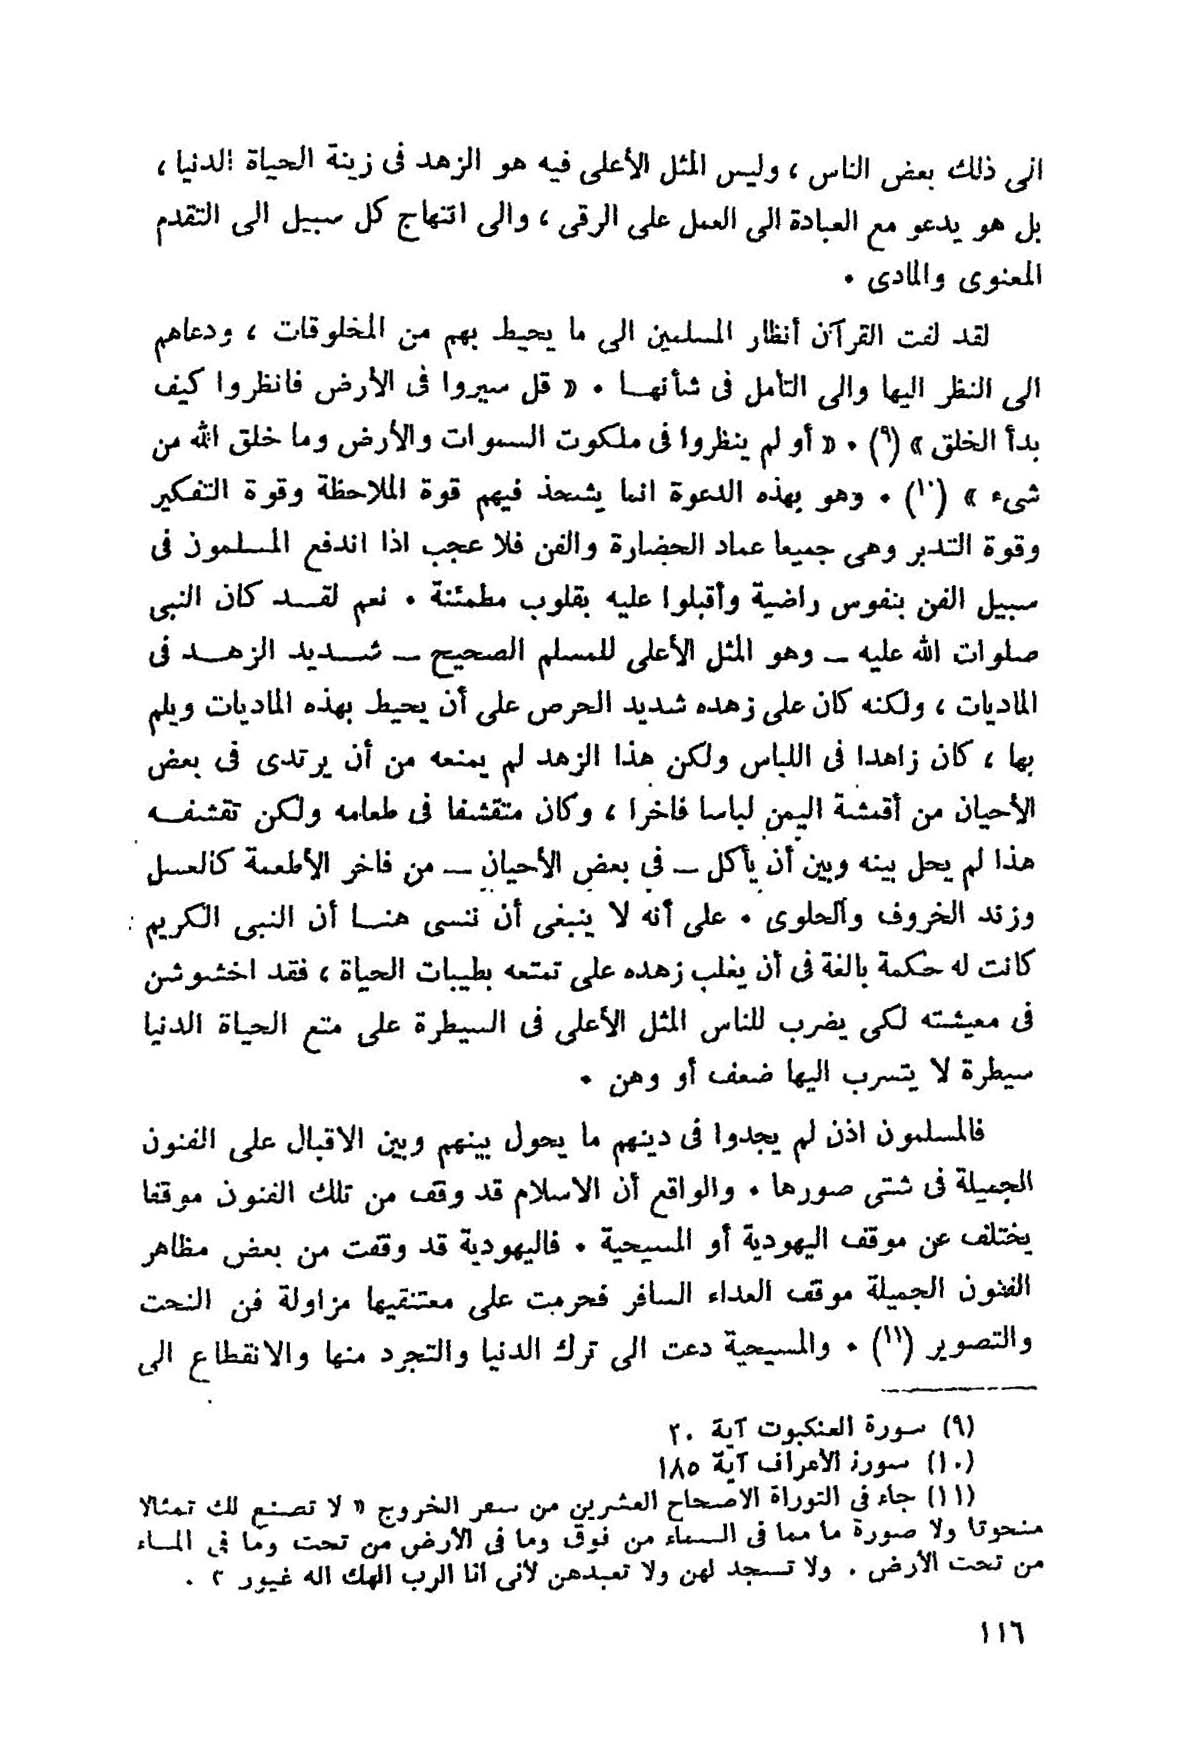 الى ذلك بعض الناس ، وليس المثل الأعلى فيه هو الزهد فى زينة الحياة الدنيا ،
بل هو يدعو مع العبادة الى العمل على الرقى ، والى انتهاج كل سبيل الى التقدم
المعنوى والمادى .
لقد لفت القرآن أنظار المسلمين الى ما يحيط بهم من المخلوقات ، ودعاهم
الى النظر اليها والى التأمل فى شأنها . « قل سيروا فى الأرض فانظروا كيف
بدأ الخلق » (٩) . « أو لم ينظروا فى ملكوت السموات والأرض وما خلق الله من
شىء » (١٠) . وهو بهذه الدعوة انما يشحذ فيهم قوة الملاحظة وقوة التفكير
وقوة التدبر وهى جميعا عماد الحضارة والفن فلا عجب اذا اندفع المسلمون فى
سبيل الفن بنفوس راضية وأقبلوا عليه بقلوب مطمئنة . نعم لقد كان النبى
صلوات الله عليه – وهو المثل الأعلى للمسلم الصحيح – شديد الزهد فى
الماديات ، ولكنه كان على زهده شديد الحرص على أن يحيط بهذه الماديات ويلم
بها ، كان زاهدا فى اللباس ولكن هذا الزهد لم يمنعه من أن يرتدى فى بعض
الأحيان من أقمشة اليمن لباسا فاخرا ، وكان متقشفا فى طعامه ولكن تقشفه
هذا لم يحل بينه وبين أن يأكل – فى بعض الأحيان – من فاخر الأطعمة كالعسل
وزند الخروف والحلوى . على أنه لا ينبغى أن ننسى هنا أن النبى الكريم
كانت له حكمة بالغة فى أن يغلب زهده على تمتعه بطيبات الحياة ، فقد اخشوشن
فى معيشته لكى يضرب للناس المثل الأعلى فى السيطرة على متع الحياة الدنيا
سيطرة لا يتسرب اليها ضعف أو وهن .
فالمسلمون اذن لم يجدوا فى دينهم ما يحول بينهم وبين الاقبال على الفنون
الجميلة فى شتى صورها . والواقع أن الاسلام قد وقف من تلك الفنون موقفا
يختلف عن موقف اليهودية أو المسيحية . فاليهودية قد وقفت من بعض مظاهر
الفنون الجميلة موقف العداء السافر فحرمت على معتنقيها مزاولة فن النحت
والتصوير (١١) . والمسيحية دعت الى ترك الدنيا والتجرد منها والانقطاع الى
(٩) سورة العنكبوت آية ٢٠
(١٠) سورة الأعراف آية ١٨٥
(١١) جاء فى التوراة الاصحاح العشرين من سفر الخروج « لا تصنع لك تمثالا
منحوتا ولا صورة ما مما فى السماء من فوق وما فى الأرض من تحت وما فى الماء
من تحت الأرض . ولا تسجد لهن ولا تعبدهن لأنى انا الرب الهك اله غيور » .
١١٦